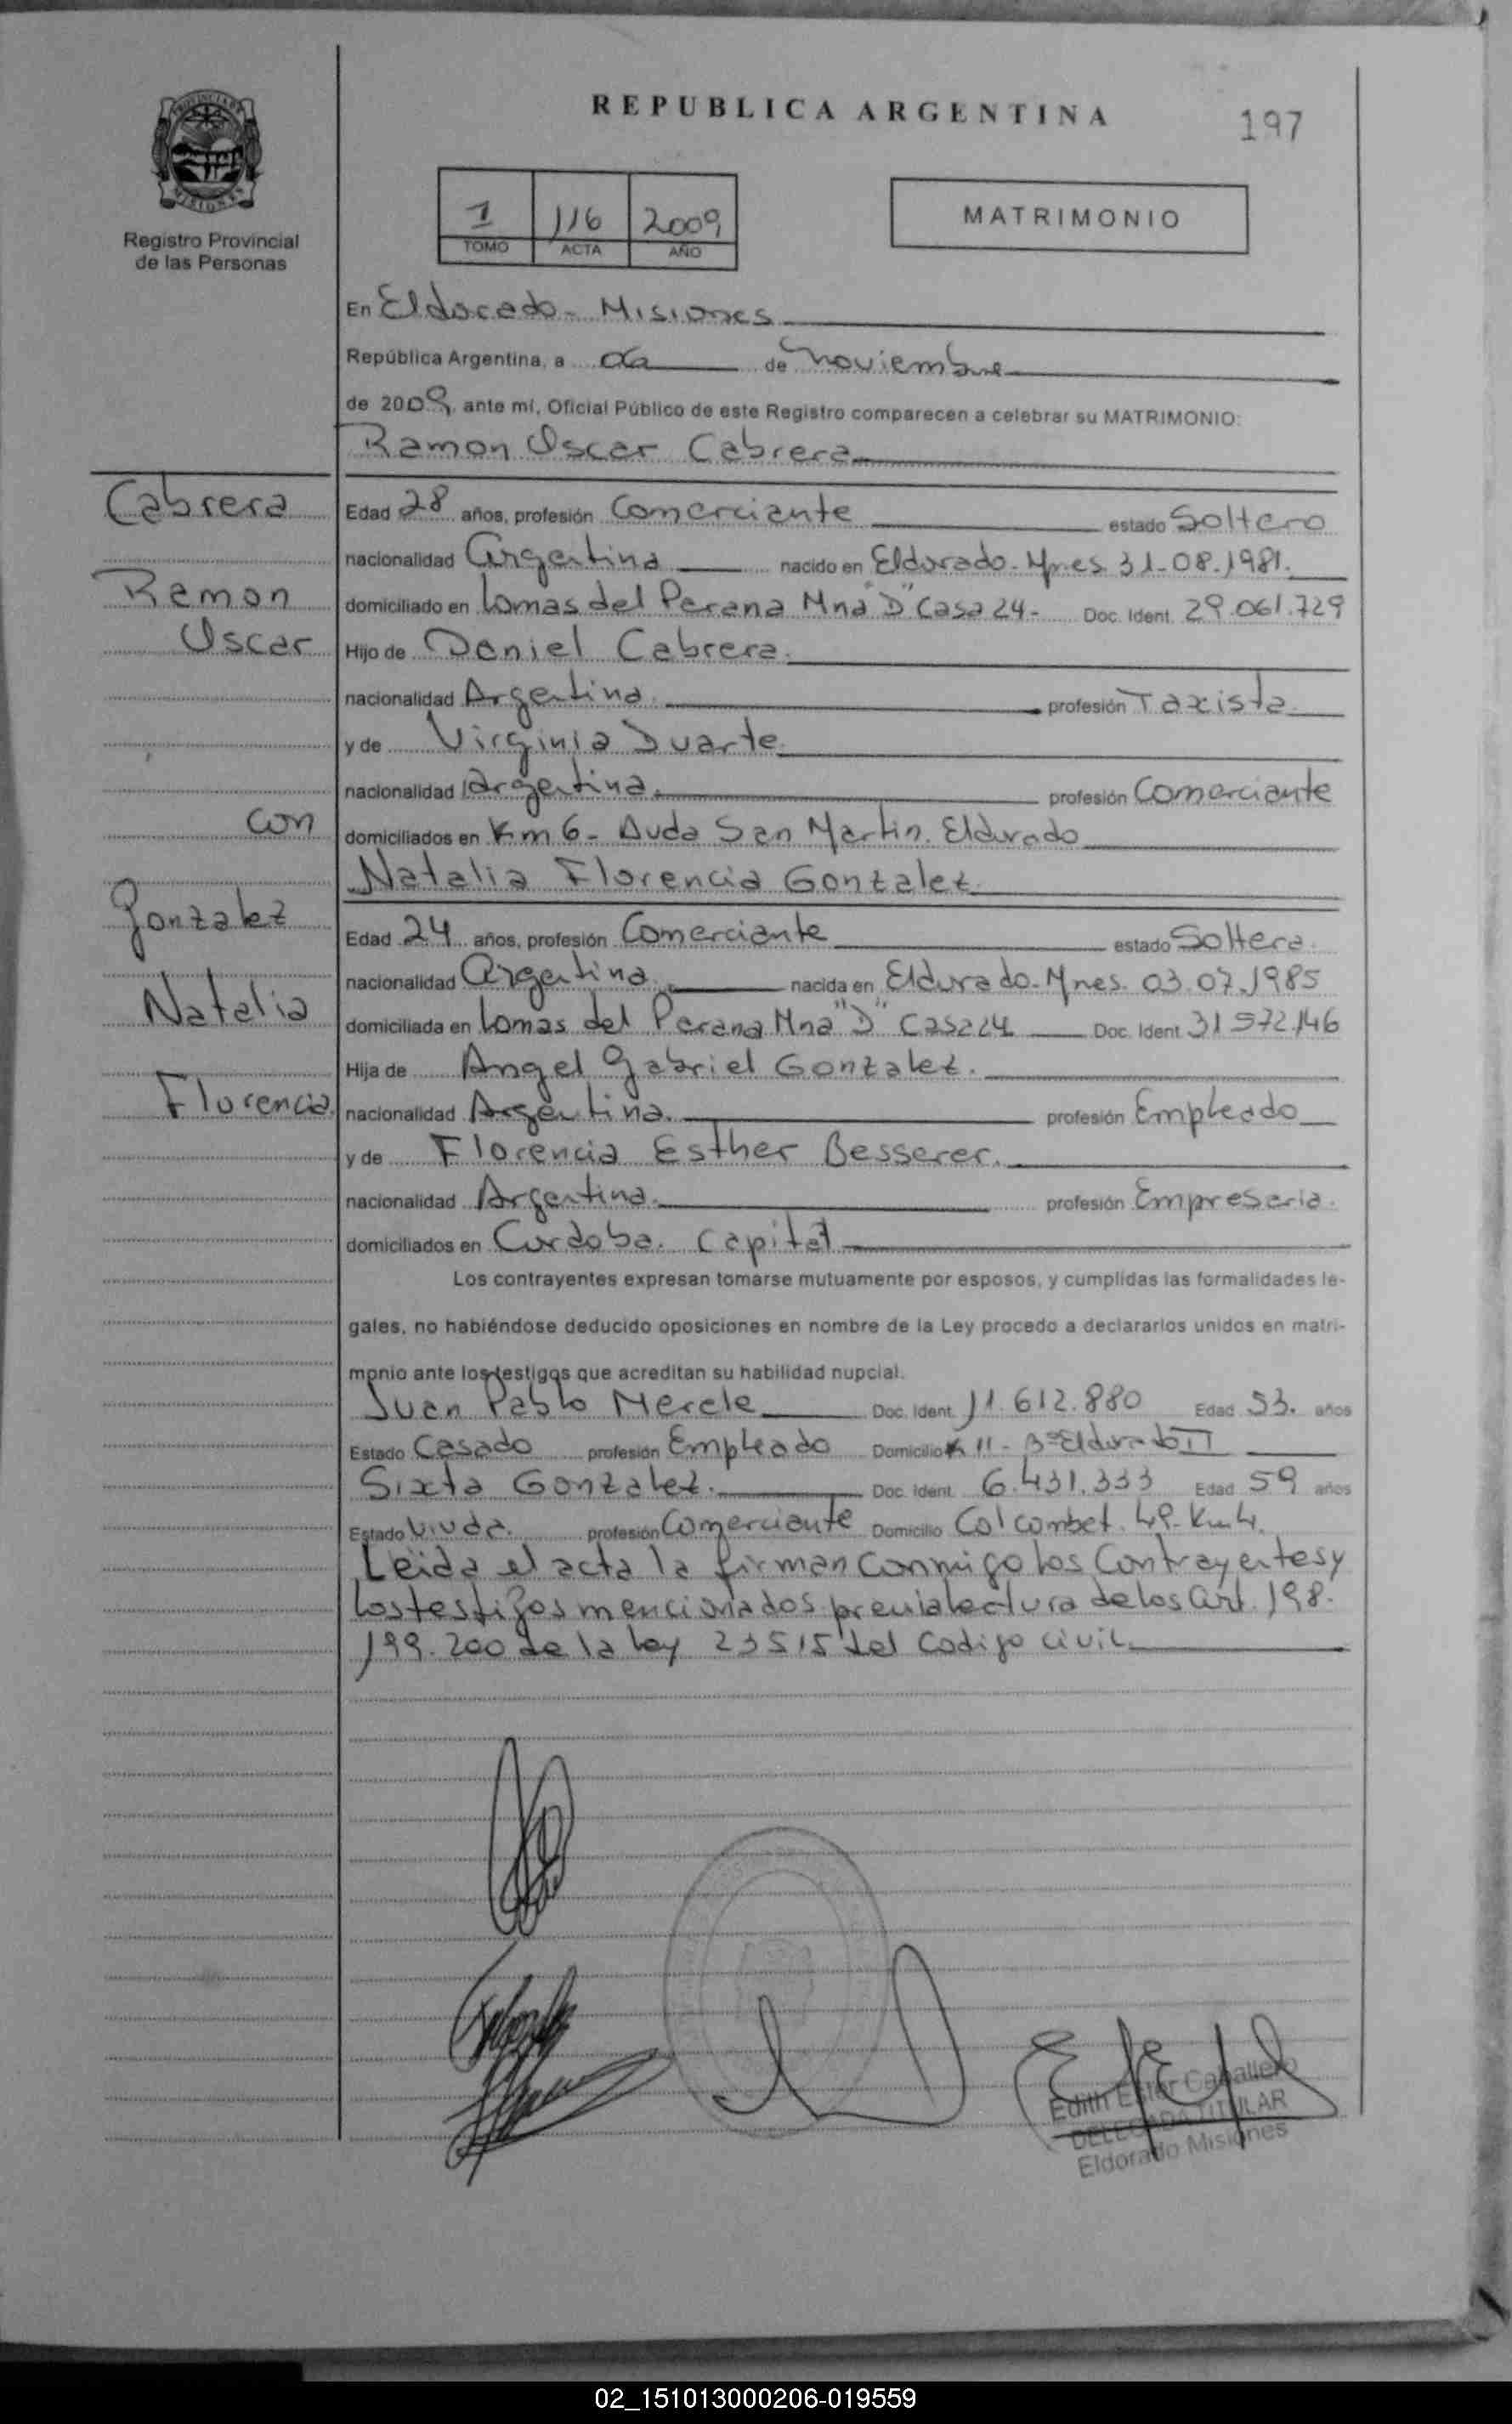 REPUBLICA ARGENTINA
197
Registro Provincial
de las Personas
1 116 2009
TOMO ACTA AÑO
MATRIMONIO
En Eldorado - Misiones
República Argentina, a 06 de noviembre
de 2009, ante mí, Oficial Público de este Registro comparecen a celebrar su MATRIMONIO:
Ramon Oscar Cabrera
Cabrera
Ramon
Oscar
con
Gonzalez
Natalia
Florencia
Edad 28 años, profesión Comerciante estado Soltero
nacionalidad Argentina nacido en Eldorado - Mnes 31-08-1981.
domiciliado en Lomas del Parana Mna "D" Casa 24 - Doc. Ident. 29.061.729
Hijo de Daniel Cabrera.
nacionalidad Argentina. profesión Taxista.
y de Virginia Duarte.
nacionalidad Argentina. profesión Comerciante
domiciliados en Km 6 - Avda San Martin. Eldorado
Natalia Florencia Gonzalez.
Edad 24 años, profesión Comerciante estado Soltera.
nacionalidad Argentina. nacida en Eldorado - Mnes. 03.07.1985
domiciliada en Lomas del Parana Mna "D" Casa 24 Doc. Ident. 31.972.146
Hija de Angel Gabriel Gonzalez.
nacionalidad Argentina. profesión Empleado
y de Florencia Esther Besserer.
nacionalidad Argentina. profesión Empresaria.
domiciliados en Cordoba. Capital
Los contrayentes expresan tomarse mutuamente por esposos, y cumplidas las formalidades le-
gales, no habiéndose deducido oposiciones en nombre de la Ley procedo a declararlos unidos en matri-
monio ante los testigos que acreditan su habilidad nupcial.
Juan Pablo Merele Doc. Ident. 11.612.880 Edad 53. años
Estado Casado profesión Empleado Domicilio K 11 - Bº Eldorado II
Sixta Gonzalez. Doc. Ident. 6.431.333 Edad 59 años
Estado Viuda. profesión Comerciante Domicilio Col combet. Km 4.
Leida el acta la firman conmigo los Contrayentes y
los testigos mencionados previa lectura de los Art. 198.
199. 200 de la ley 23515 del Codigo civil.
Edith Ester Caballero
DELEGADA TITULAR
Eldorado Misiones
02_151013000206-019559